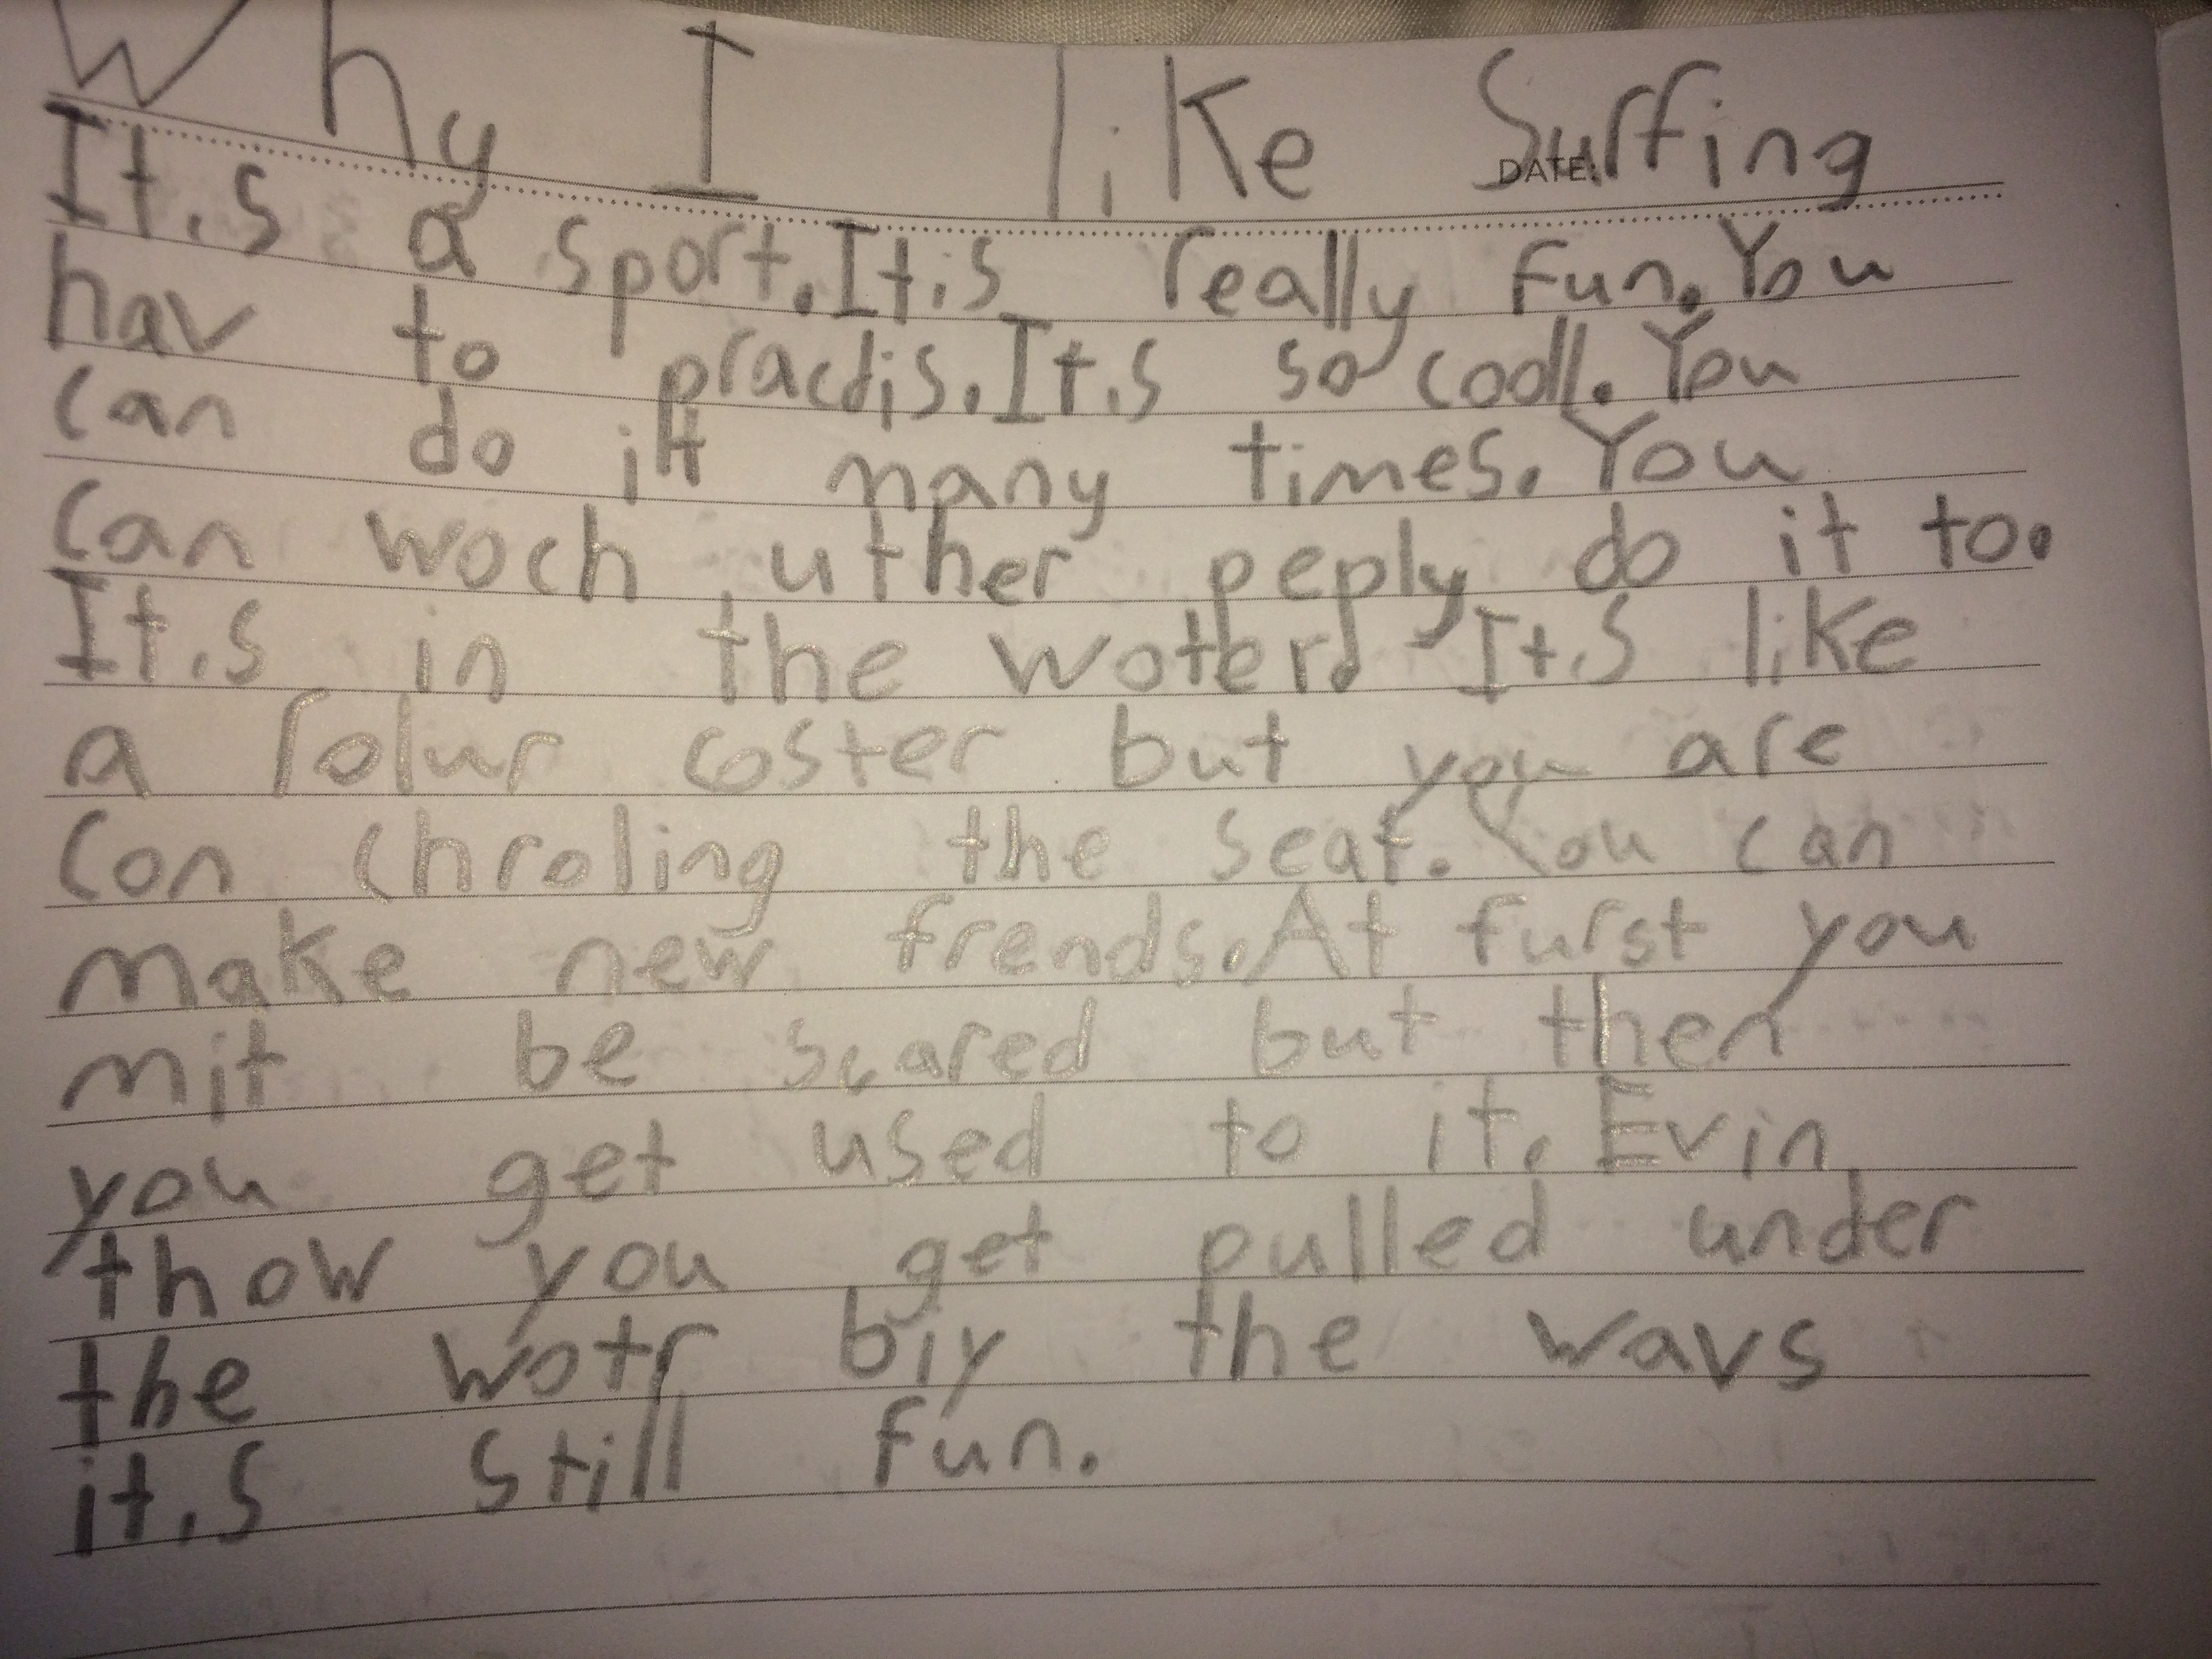 Why I like Surfing
DATE:
It,s a sport.It,s really fun.You
hav to practis.It,s so cooll.You
can do it many times.You
can woch uther peply do it too.
It,s in the woter. It,s like
a rolur coster but you are
con chroling the seat.You can
make new frends.At furst you
mit be scared but then
you get used to it.Evin
thow you get pulled under
the wotr biy the wavs
it,s still fun.